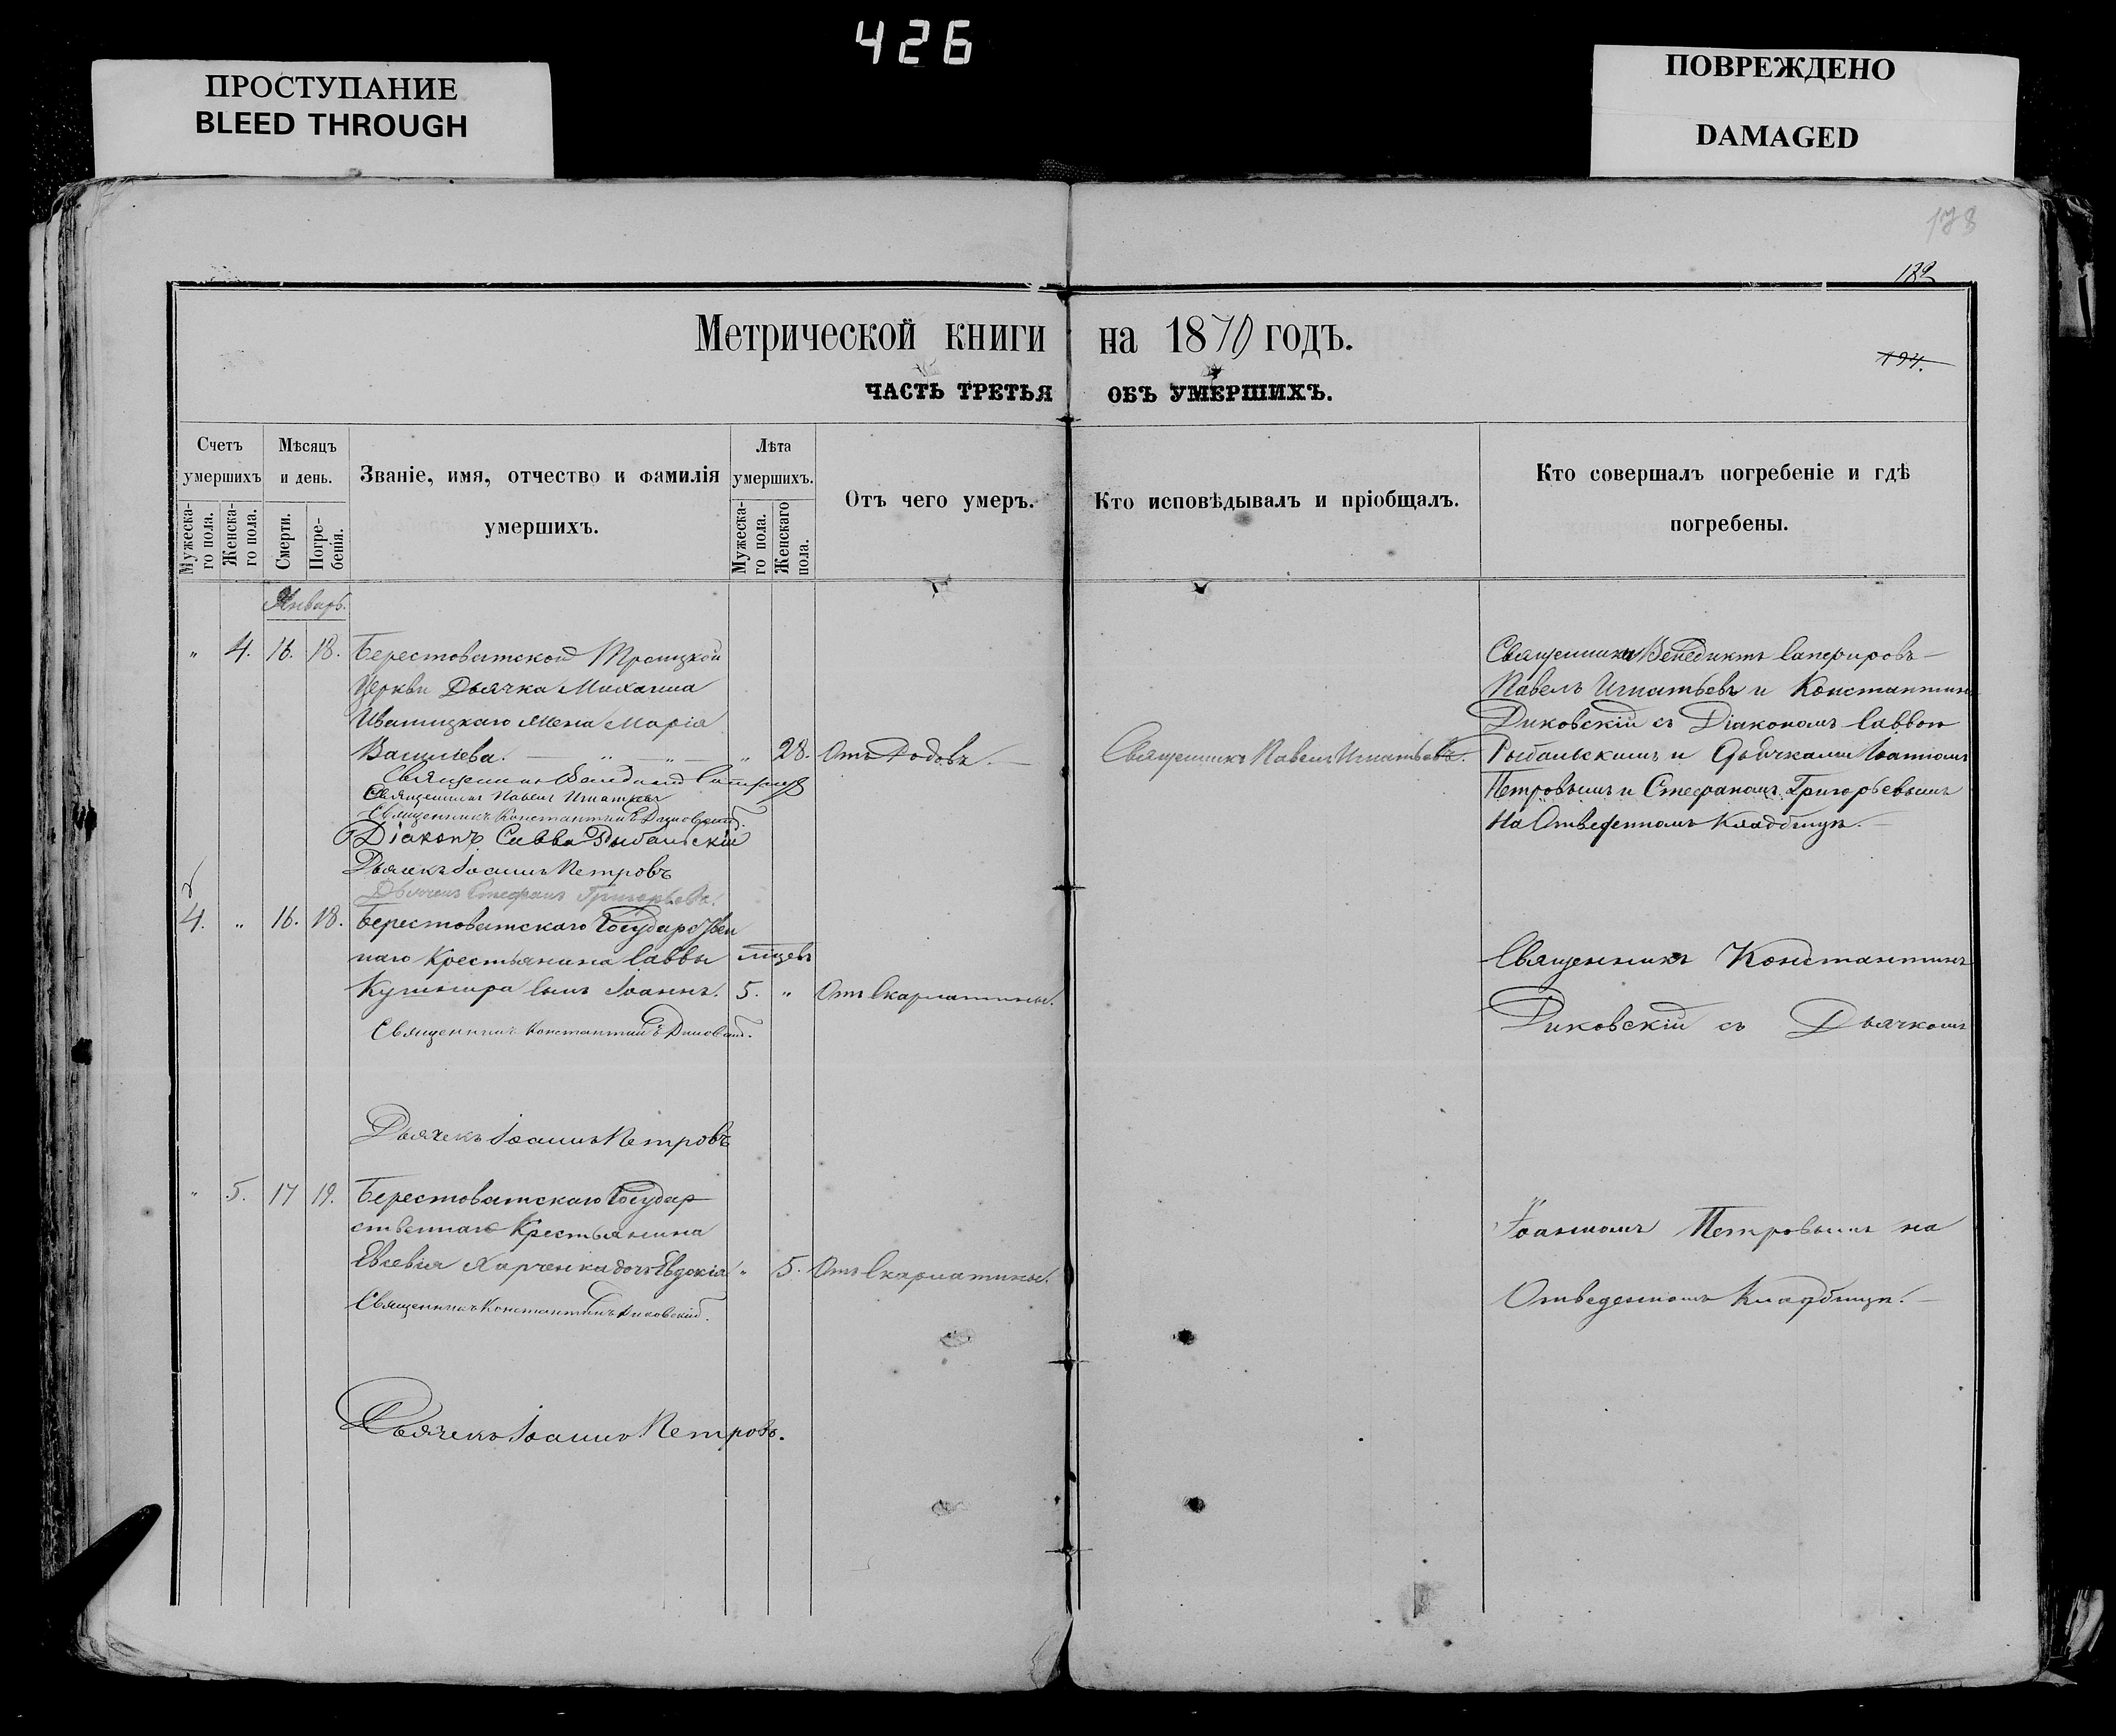 426
ПРОСТУПАНИЕ
BLEED THROUGH
ПОВРЕЖДЕНО
DAMAGED
178
182
194.
Метрической книги на 1870 годъ.
ЧАСТЬ ТРЕТЬЯ ОБЪ УМЕРШИХЪ.
Счетъ умершихъ
Мужеска-го пола.
Женска-го пола.
Мѣсяцъ и день.
Смерти.
Погре-бенія.
Званіе, имя, отчество и фамилія
умершихъ.
Лѣта умершихъ.
Мужеска-го пола.
Женскаго пола.
Отъ чего умеръ.
Кто исповѣдывалъ и пріобщалъ.
Кто совершалъ погребеніе и гдѣ
погребены.
Январь.
" 4. 16. 18. Берестоватской Троицкой
Церкви Дьячка Михаила
Иваницкаго Жена Марія
Василіева. " 28. Отъ Родовъ.
Священникъ Павелъ Игнатьевъ.
Священники Венедиктъ Сапфировъ
Павелъ Игнатьевъ и Константинъ
Диковскій съ Діакономъ Саввою
Рыбальскимъ и Дьячками Іоанномъ
Петровымъ и Стефаномъ Григорьевымъ
На Отведенномъ Кладбищѣ.
Священникъ Павелъ Игнатьевъ
Священникъ Константинъ Диковский.
Діаконъ Савва Рыбальскій
Дьячекъ Іоаннъ Петровъ
Дьячекъ Стефанъ Григорьевъ.
4. " 16. 18. Берестоватскаго Государствен
наго Крестьянина Саввы
Кушнира сынъ Іоаннъ. 5. " Отъ Скарлатины.
Священникъ Константинъ Диковский.
Дьячекъ Іоаннъ Петровъ
" 5. 17 19. Берестоватскаго Государ
ственнаго Крестьянина
Евсевія Харченка дочь Евдокія " 5. Отъ Скарлатины.
Священникъ Константинъ Диковский.
Дьячекъ Іоаннъ Петровъ.
Священникъ Константинъ
Диковскій съ Дьячкомъ
Іоанномъ Петровымъ на
Отведенномъ Кладбищѣ.